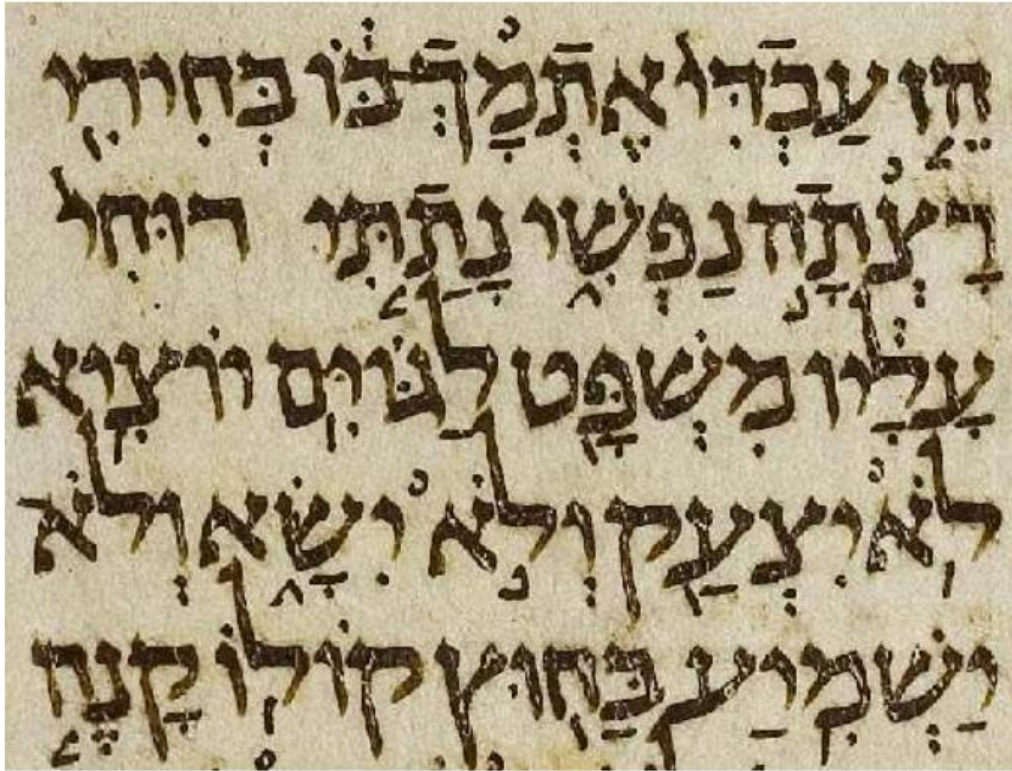 הֵ֤ן עַבְדִּי֙ אֶתְמָךְ־בּ֔וֹ בְּחִירִ֖י
רָצְתָ֣ה נַפְשִׁ֑י נָתַ֤תִּי רוּחִי֙
עָלָ֔יו מִשְׁפָּ֖ט לַגּוֹיִ֥ם יוֹצִֽיא
לֹ֥א יִצְעַ֖ק וְלֹ֣א יִשָּׂ֑א וְלֹֽא
יַשְׁמִ֥יעַ בַּח֖וּץ קוֹלֽוֹ קָנֶ֤ה